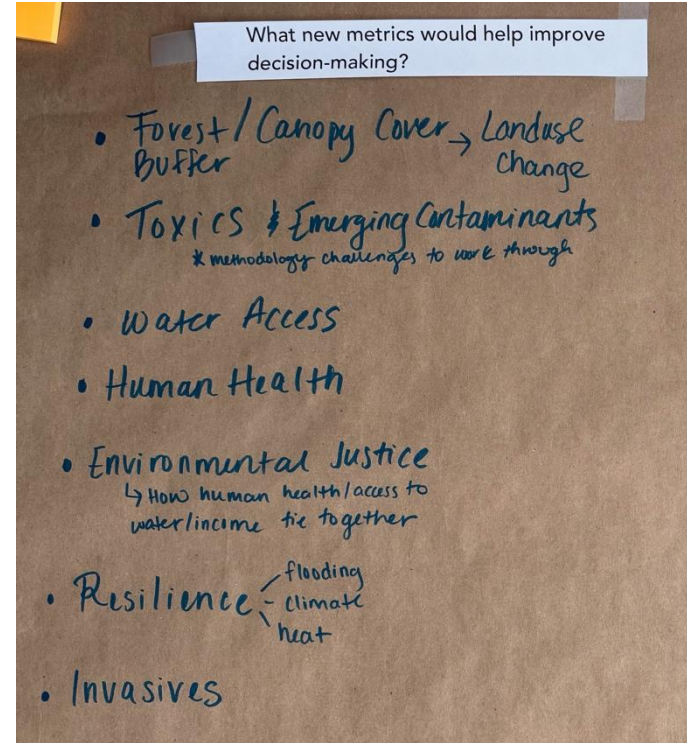 What new metrics would help improve
decision-making?
• Forest/Canopy Cover → Landuse
Buffer Change
• Toxics & Emerging Contaminants
* methodology challenges to work through
• Water Access
• Human Health
• Environmental Justice
↳ How human health/access to
water/income tie together
• Resilience - flooding
- climate
- heat
• Invasives